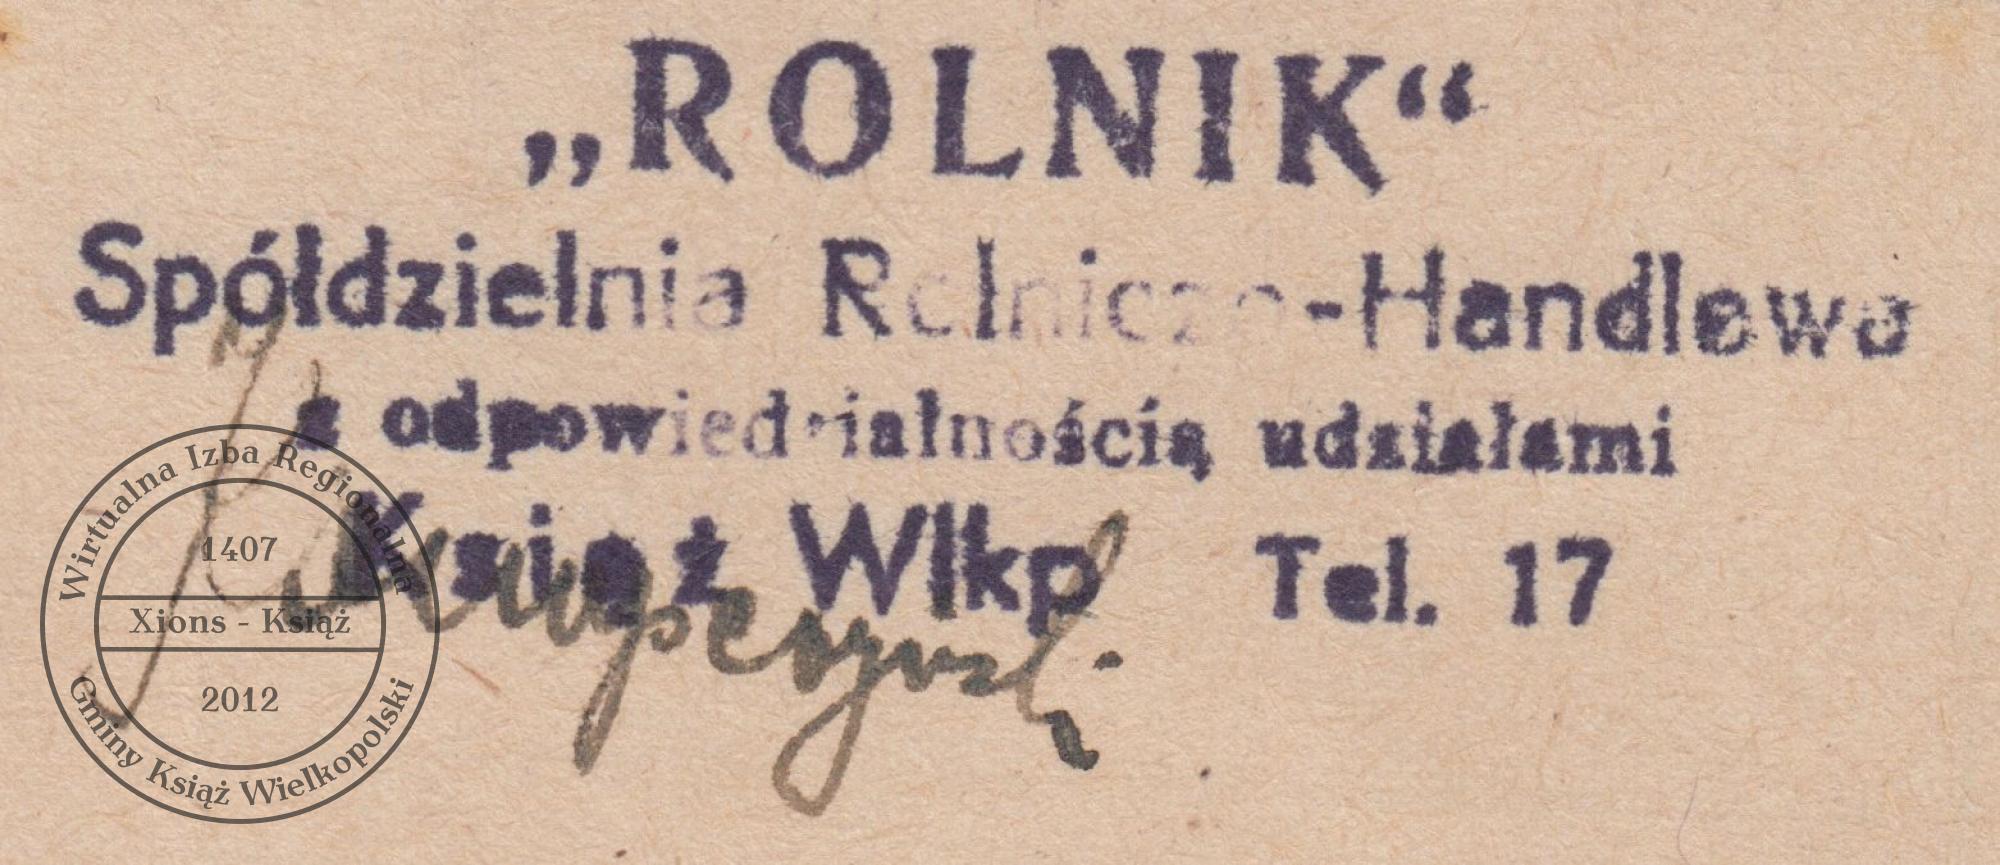 „ROLNIK“
Spółdzielnia Rolniczo-Handlowa
z odpowiedzialnością udziałami
Książ Wlkp Tel. 17
Wirtualna Izba Regionalna
1407
Xions - Książ
2012
Gminy Książ Wielkopolski